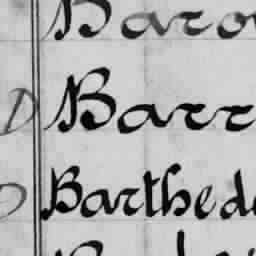 Baro
D Barr
D Barthede